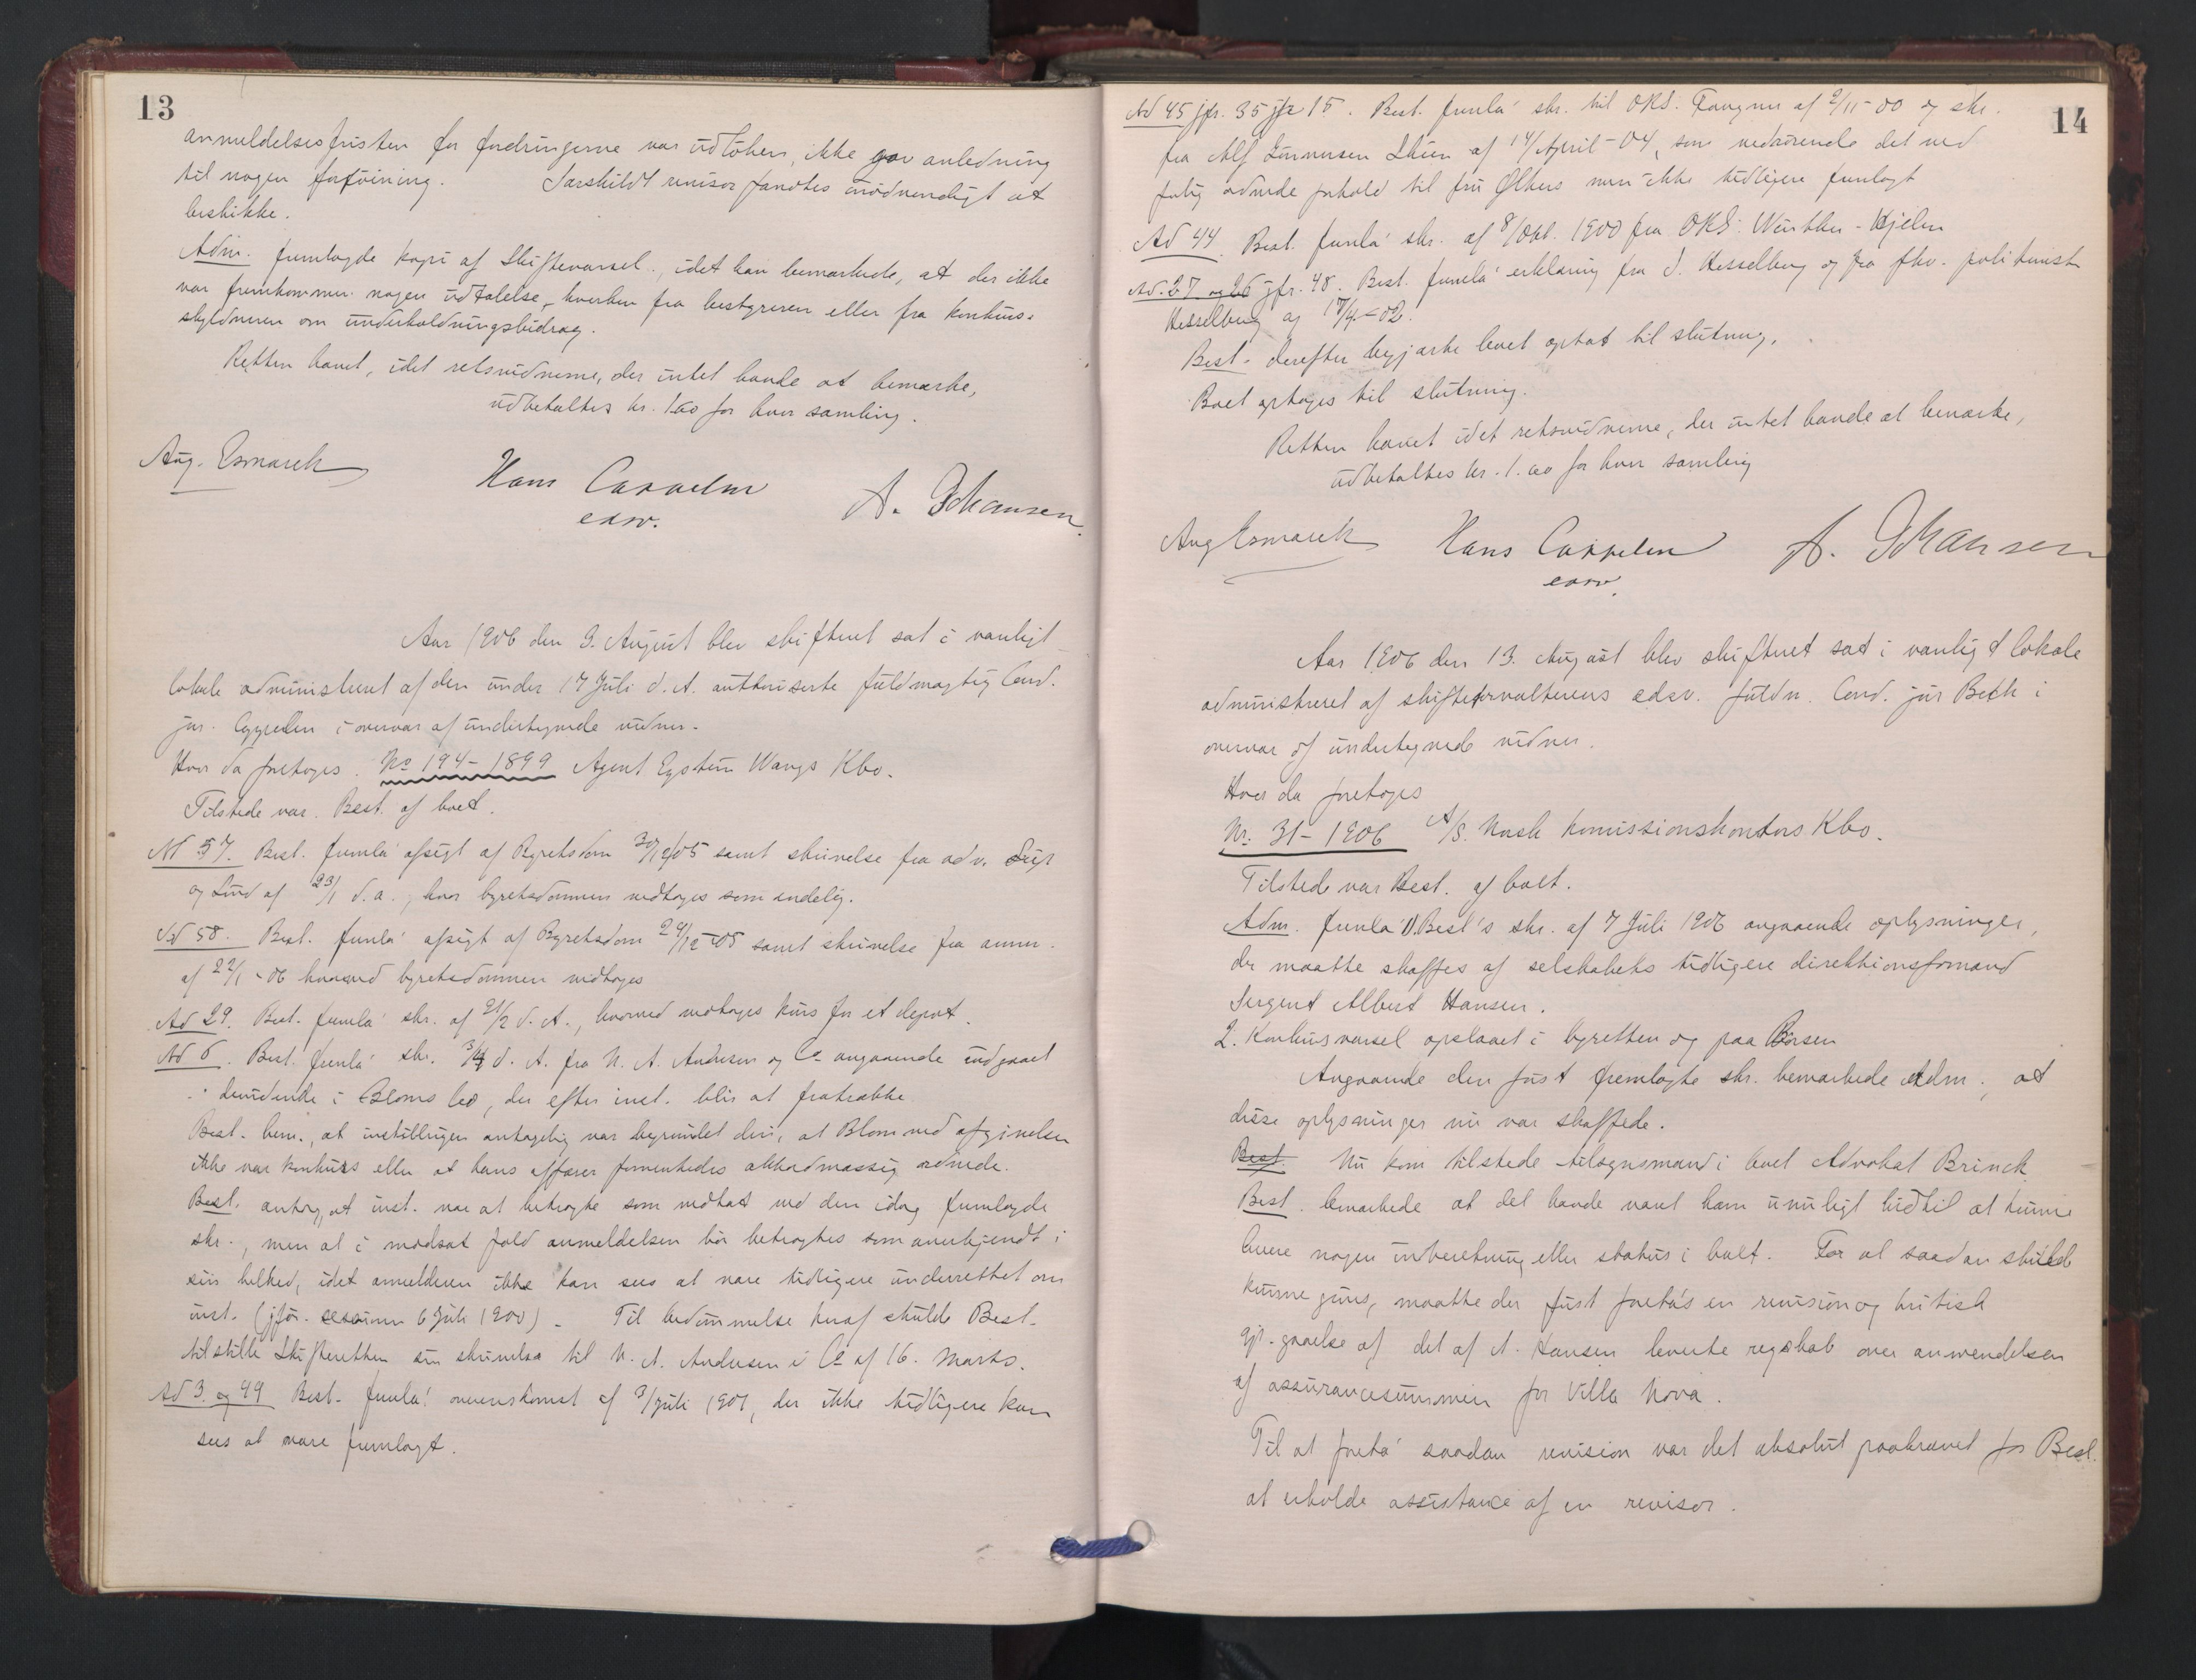 13
anmeldelsesfristen for fordringerne var udløben, ikke gav anledning
til nogen forføining. Særskildt revisor fandtes unødvendigt at
beskikke.
Adm. fremlagde kopi af Skiftevarsel, idet han bemærkede, at der ikke
var fremkommen nogen udtalelse, hverken fra bestyreren eller fra konkurs-
skyldneren om underholdningsbidrag.
Retten hævet, idet retsvidnerne, der intet havde at bemærke,
udbetaltes kr. 1.00 for hver samling.
Aug. Esmarch Hans Cappelen A. Johansen
edsv.
Aar 1906 den 9. August blev skifteret sat i vanligt
lokale administreret af den under 17 Juli d. A. autoriserte fuldmægtig Cand.
jur. Cappelen i overvær af undertegnede vidner.
Hvor da foretoges. No 194-1899 Agent Eystein Wangs Kbo.
Tilstede var Best. af boet.
Ad 57. Best. fremla' afsigt af Byretsdom 30/12/05 samt skrivelse fra adv.
og Lund af 23/1 d. a., hvor byretsdommen vedtoges som endelig.
Ad 58. Best. fremla' afsigt af Byretsdom 29/12-05 samt skrivelse fra anm.
af 22/1-06 hvorved byretsdommen vedtoges
Ad 29. Best. fremla' skr. af 21/2 d. A., hvorved vedtoges kurs for et depot.
Ad 6. Best. fremla' skr. 3/4 d. A. fra N. A. Andresen og Co angaaende indgaaet
dividende i Bloms bo, der efter inst. blir at fratrække.
Best. bem., at instillingen antagelig var begrundet deri, at Blom ved afgivelsen
ikke var konkurs eller at hans affærer formentlig akkordmæssig ordnede.
Best. antog, at inst. var at betragte som vedtat ved den idag fremlagde
skr., men at i modsat fald anmeldelsen bør betragtes som anerkjendt i
sin helhed, idet anmelderen ikke kan sees at være tidligere underrettet om
inst. (jfr. sessionen 6 Juli 1900). Til bedømmelse heraf skulde Best.
tilstille Skifteretten sin skrivelse til N. A. Andresen & Co af 16. Marts.
Ad 3. og 49 Best. fremla' overenskomst af 3/Juli 1901, der ikke tidligere kan
sees at være fremlagt.
14
Ad 45 jfr. 35 jfr 15. Best. fremla' skr. til ORS. af 2/11-00 og skr.
fra Alf Skien af 14/April-04, som vedrørende det ved
forlig ordnede forhold til fru men ikke tidligere fremlagt
Ad 44. Best. fremla' skr. af 8/Okt. 1900 fra ORS. Winther-Hjelm
Ad. 27 og 26 jfr. 48. Best. fremla' erklæring fra J. Hesselberg og fra fhv. politimester
Hesselberg af 17/4-02.
Best. derefter begjærte boet optat til slutning.
Boet optoges til slutning.
Retten hævet idet retsvidnerne, der intet havde at bemærke,
udbetaltes kr. 1.00 for hver samling
Aug Esmarch Hans Cappelen A. Johansen
edsv.
Aar 1906 den 13. August blev skifteret sat i vanligt lokale
administreret af skifteforvalterens edsv. fuldm. Cand. jur Bech i
overvær af undertegnede vidner.
Hvor da foretoges
Nr. 31-1906 A/S. Norsk Komissionskontors Kbo.
Tilstede var Best. af boet.
Adm. fremla 1) Best's skr. af 7 Juli 1906 angaaende oplysninger,
der maatte skaffes af selskabets tidligere direktionsformand
Sergent Albert Hansen.
2. Konkursvarsel opslaaet i byretten og paa Børsen
Angaaende den først fremlagte skr. bemærkede Adm., at
disse oplysninger nu var skaffede.
Best. Nu kom tilstede tilsynsmand i boet Advokat Brinck
Best. bemærkede at det havde været ham umuligt hidtil at kunne
levere nogen indberetning eller status i boet. For at saadan skulde
kunne gives, maatte der først foretas en revision og kritisk
gj.gaaelse af det af A. Hansen leverte regnskab over anvendelsen
af assurancesummen for Villa Nova.
Til at foreta' saadan revision var det absolut paakrævet for Best.
at erholde assistance af en revisor.